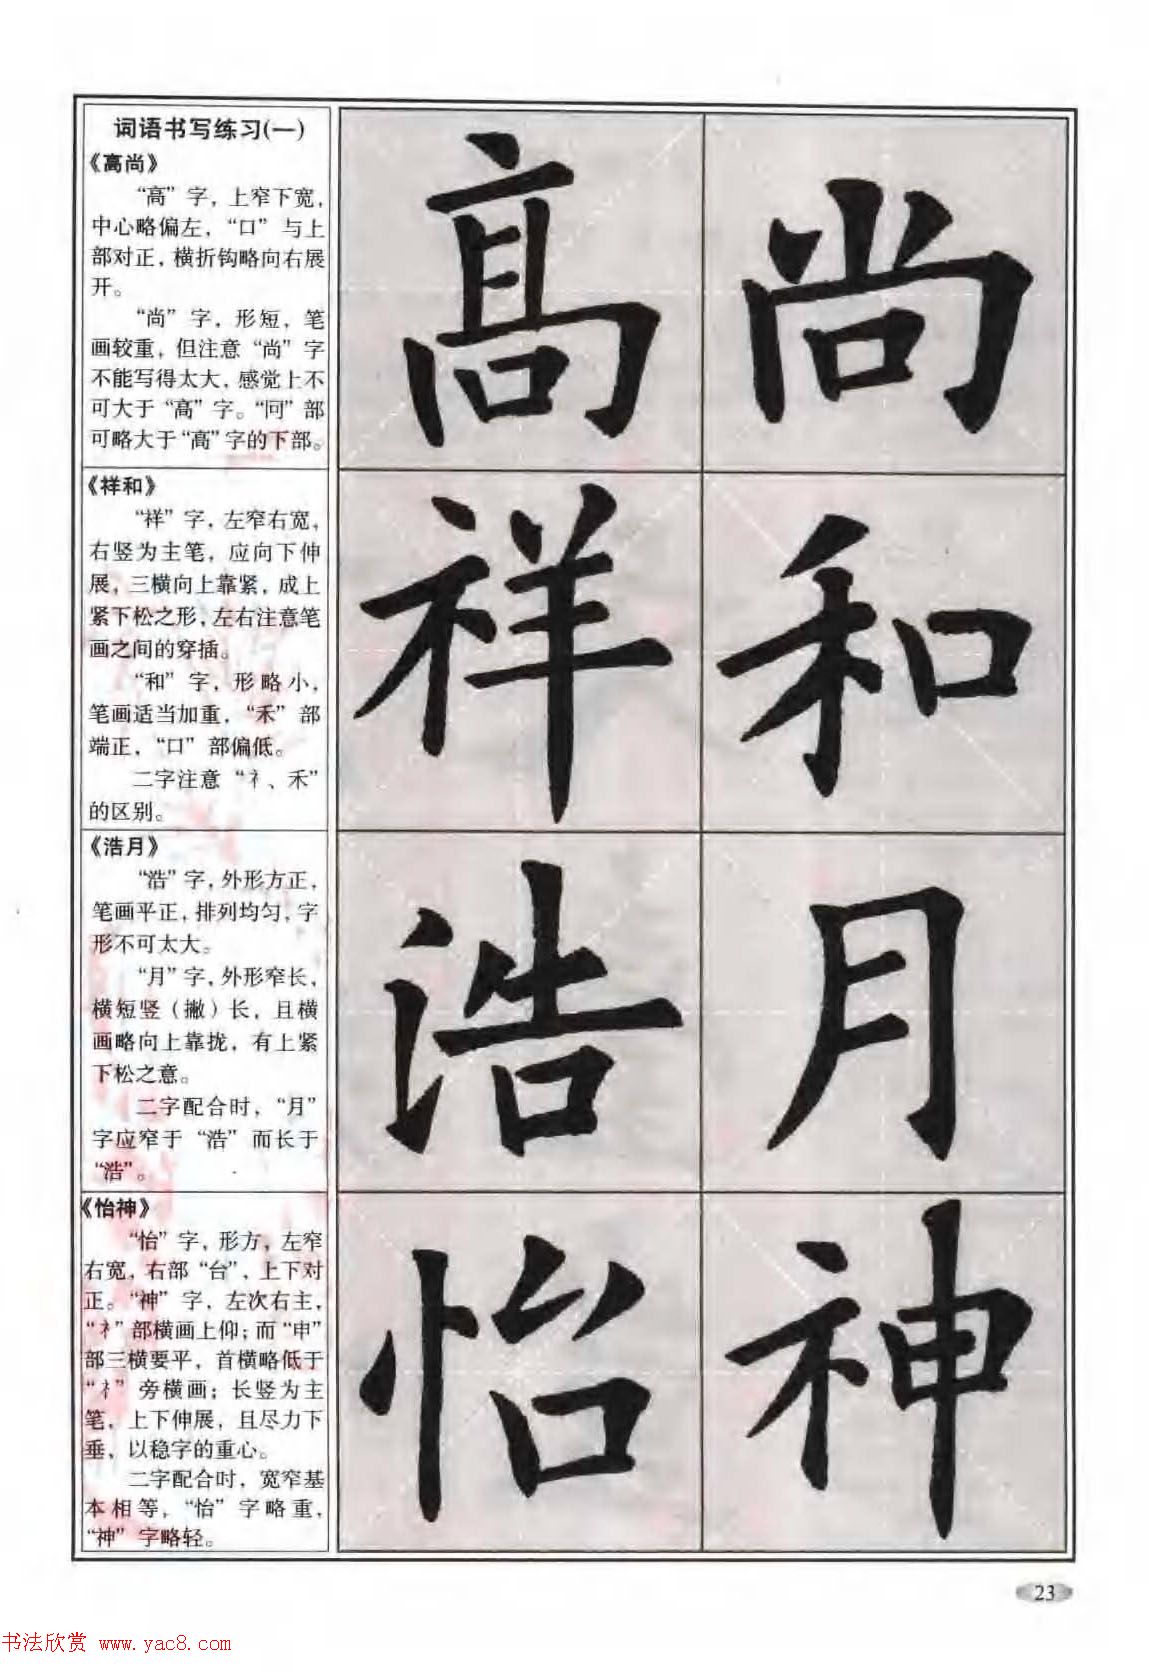 词语书写练习(一)
《高尚》
“高”字，上窄下宽，
中心略偏左，“口”与上
部对正，横折钩略向右展
开。
“尚”字，形短，笔
画较重，但注意“尚”字
不能写得太大，感觉上不
可大于“高”字。“冋”部
可略大于“高”字的下部。
高尚
《祥和》
“祥”字，左窄右宽，
右竖为主笔，应向下伸
展，三横向上靠紧，成上
紧下松之形，左右注意笔
画之间的穿插。
“和”字，形略小，
笔画适当加重，“禾”部
端正，“口”部偏低。
二字注意“礻、禾”
的区别。
祥和
《浩月》
“浩”字，外形方正，
笔画平正，排列均匀，字
形不可太大。
“月”字，外形窄长，
横短竖（撇）长，且横
画略向上靠拢，有上紧
下松之意。
二字配合时，“月”
字应窄于“浩”而长于
“浩”。
浩月
《怡神》
“怡”字，形方，左窄
右宽，右部“台”，上下对
正。“神”字，左次右主，
“礻”部横画上仰；而“申”
部三横要平，首横略低于
“礻”旁横画；长竖为主
笔，上下伸展，且尽力下
垂，以稳字的重心。
二字配合时，宽窄基
本相等，“怡”字略重，
“神”字略轻。
怡神
23
书法欣赏 www.yac8.com